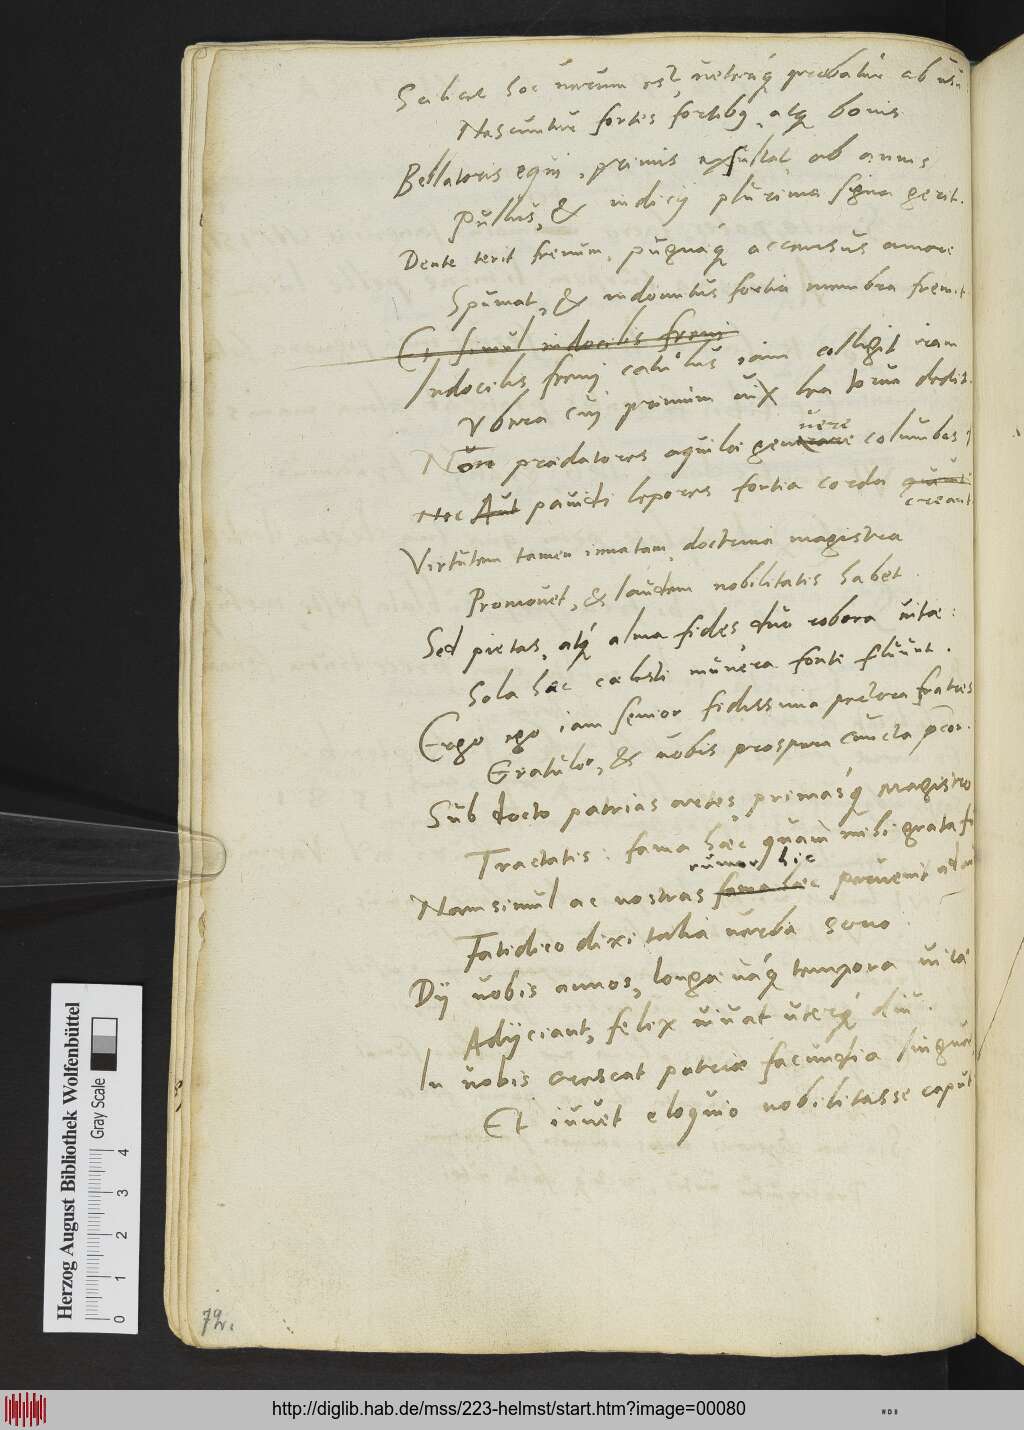 Scilicet hoc uerum est, uetereq́ probatur ab usu:
Nascuntur fortes fortibꝫ atq bonis
Bellatoris equi, primis exsultat ab annis
Pullus, & indicij plurima signa gerit.
Dente terit frenum, pugnaq́ accensus amore
Spumat, & indomitus fortia membra fremit.
Et simul indocilis freni
Indocilis freni catulus iam colligit iram
Vbera cui primum uix lea torua dedit.
uere
Non prædatores aquilæ generare columbas,
Nec Aut pauidi lepores fortia corda
creant
Virtutem tamen innatam, doctrina magistra
Promouet, & laudem nobilitatis habet.
Sed pietas, atq́ alma fides duo robora uitæ:
Sola hæc cælesti munera fonte fluunt.
Ergo ego iam senior fidissima pectora fratres
Gratulor, & uobis prospera cuncta precor.
Sub docto patrias artes primasq́ magistro
Tractatis: fama hæc quam mihi grata
rumor hic
Nam simul ac nostras fama hæc peruenit ad
Fatidico dixi talia uerba sono.
Dij uobis annos, longæuaq́ tempora uitæ
Adijciant, felix uiuat uterq́ diu.
In uobis crescat patriæ facundia linguæ
Et iuuet eloquio nobilitasse caput
79v.
Herzog August Bibliothek Wolfenbüttel
Gray Scale
0 1 2 3 4
http://diglib.hab.de/mss/223-helmst/start.htm?image=00080